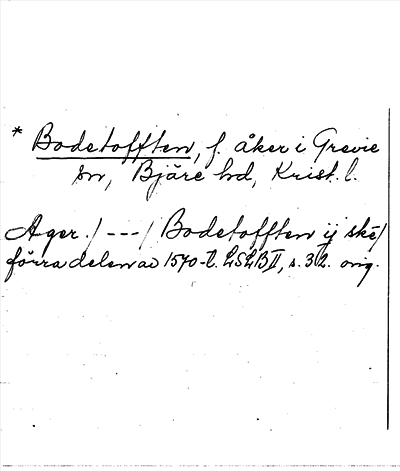 * Bodetofften, f. åker i Grevie
sn, Bjäre hd, Krist. l.
Ager./ --- / Bodetofften ij skē/
förra delen av 1570-t. LSLB II, s. 32. orig.